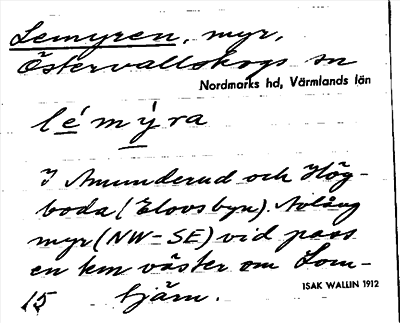 Lemyren, myr,
Östervallskogs sn
Nordmarks hd, Värmlands län
lémýra
I Amunderud och Hög-
boda (Elovsbyn). Avlång
myr (NW-SE) vid pass
en km väster om Lom-
15 tjärn.
ISAK WALLIN 1912